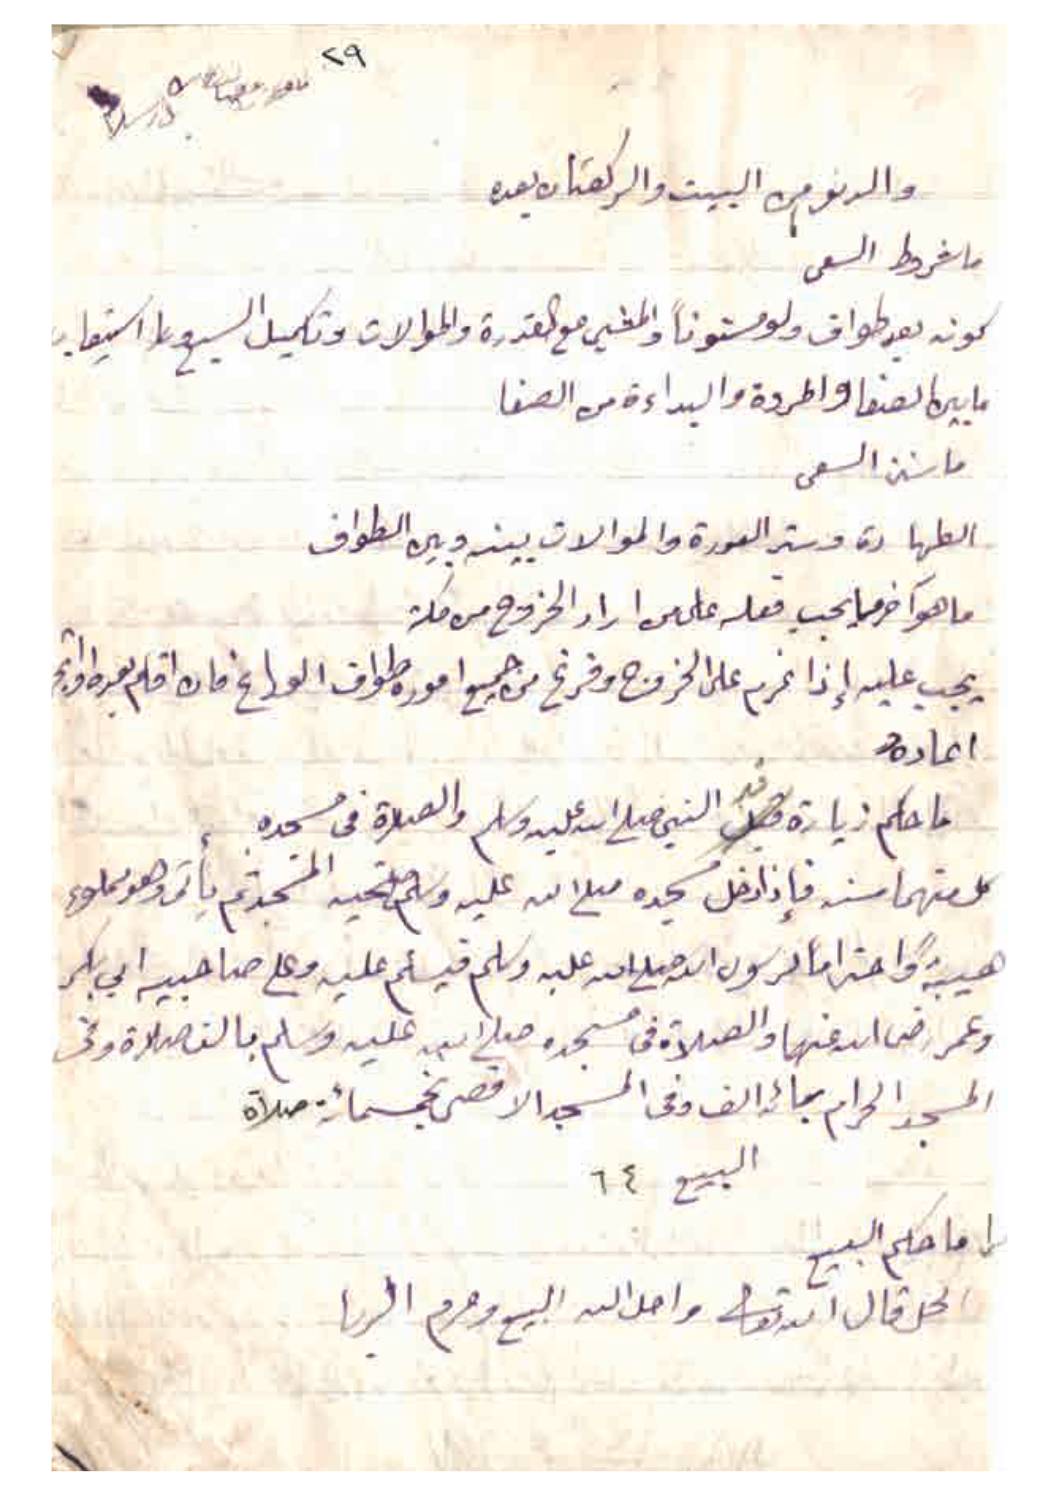 ٢٩
والدنو من البيت والركعتان بعده
ما شروط السعي
كونه بعد طواف ولو مسنوناً والمشي مع القدرة والموالات وتكميل السبع واستيعاب
ما بين الصفا والمروة والبداءة من الصفا
ما سنن السعي
الطهارة وستر العورة والموالات بينه وبين الطواف
ما هو آخر ما يجب فعله على من اراد الخروج من مكة
يجب عليه إذا عزم على الخروج وفرغ من جميع اموره طواف الوداع فان اقام بعده او اتجر
اعاده
ما حكم زيارة قبر النبي صلى الله عليه وسلم والصلاة في مسجده
كل منهما سنه فإذا دخل مسجده صلى الله عليه وسلم صلى تحية المسجد ثم يأتي وهو مملوء
هيبةً واحتراماً لرسول الله صلى الله عليه وسلم فيسلم عليه وعلى صاحبيه ابي بكر
وعمر رضي الله عنهما والصلاة في مسجده صلى الله عليه وسلم بالف صلاة وفي
المسجد الحرام بمائة الف وفي المسجد الاقصى بخمسمائة صلاة
البيع ٦٤
ما حكم البيع
الحل قال الله تعالى واحل الله البيع وحرم الربا